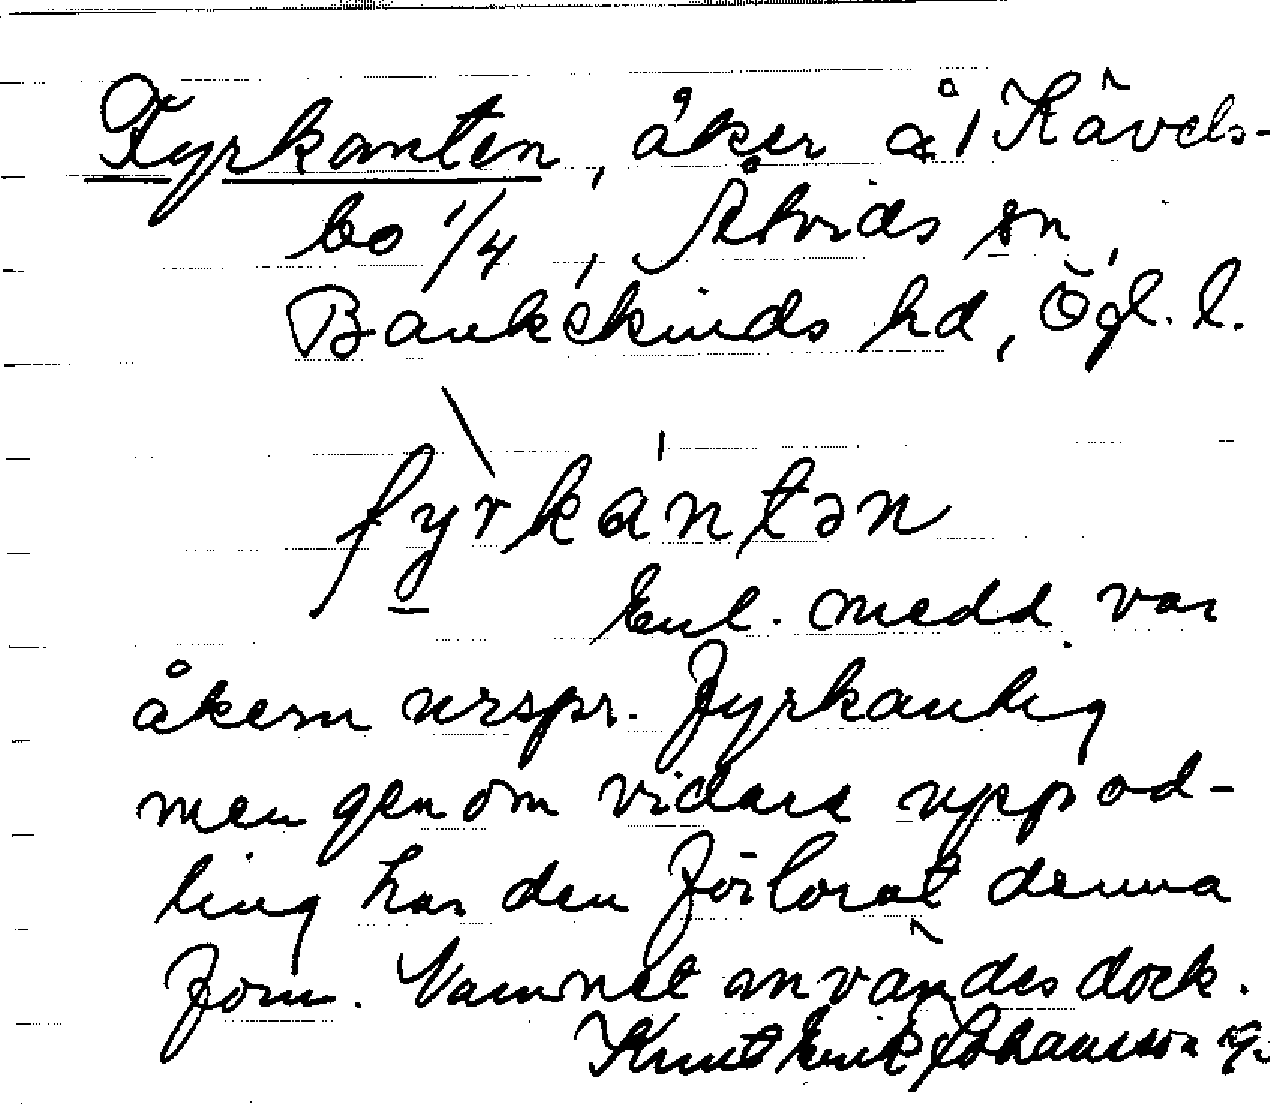 Fyrkanten, åker å Kävels-
bo 1/4, Åtvids sn,
Bankekinds hd, Ögl. l.
fyrkantən
Enl. medd. var
åkern urspr. fyrkantig
men genom vidare uppod-
ling har den förlorat denna
form. Namnet användes dock.
Knut Erik Johansson